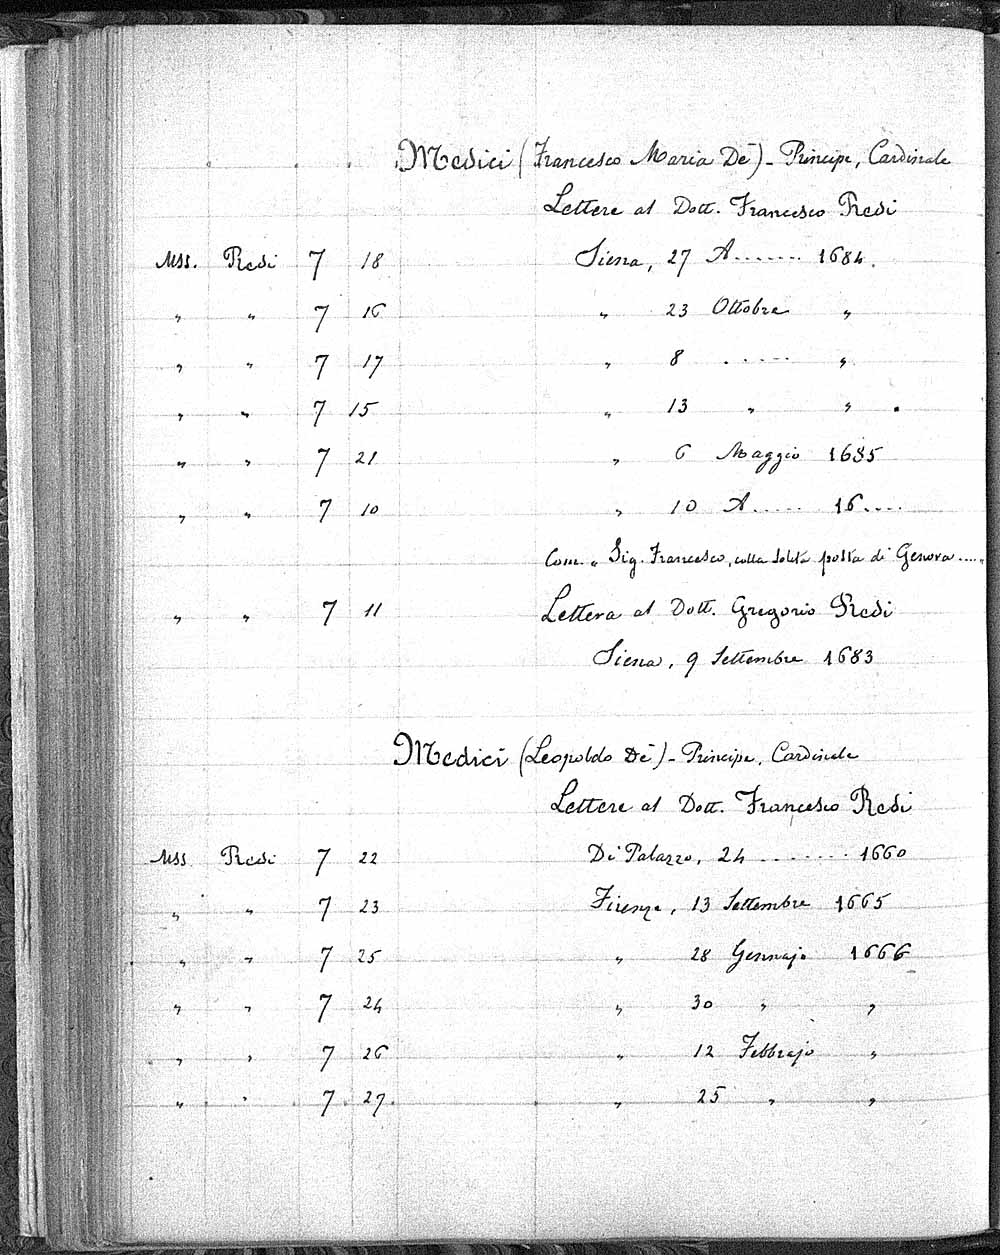 Medici (Francesco Maria De') - Principe, Cardinale
Lettere al Dott. Francesco Redi
Mss. Redi 7 18 Siena, 27 A....... 1684.
" " 7 16 " 23 Ottobre "
" " 7 17 " 8 ..... "
" " 7 15 " 13 " "
" " 7 21 " 6 Maggio 1685
" " 7 10 " 10 A..... 16....
Com. " Sig. Francesco, colla solita posta di Genova ....."
" " 7 11 Lettera al Dott. Gregorio Redi
Siena, 9 Settembre 1683
Medici (Leopoldo De') - Principe, Cardinale
Lettere al Dott. Francesco Redi
Mss Redi 7 22 Di Palazzo, 24 ........ 1660
" " 7 23 Firenze, 13 Settembre 1665
" " 7 25 " 28 Gennajo 1666
" " 7 24 " 30 " "
" " 7 26 " 12 Febbrajo "
" " 7 27 " 25 " "